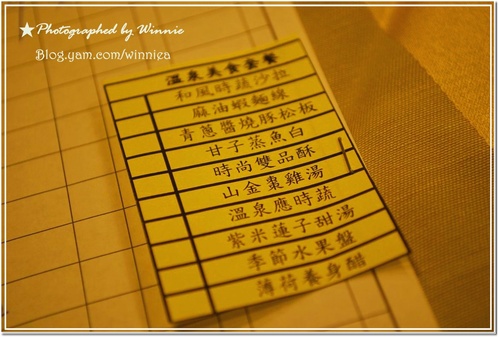 Photographed by Winnie
Blog.yam.com/winniea
溫泉美食套餐
和風時蔬沙拉
麻油蝦麵線
青蔥醬燒豚松板
甘子蒸魚白
時尚雙品酥
山金棗雞湯
溫泉應時蔬
紫米蓮子甜湯
季節水果盤
薄荷養身醋